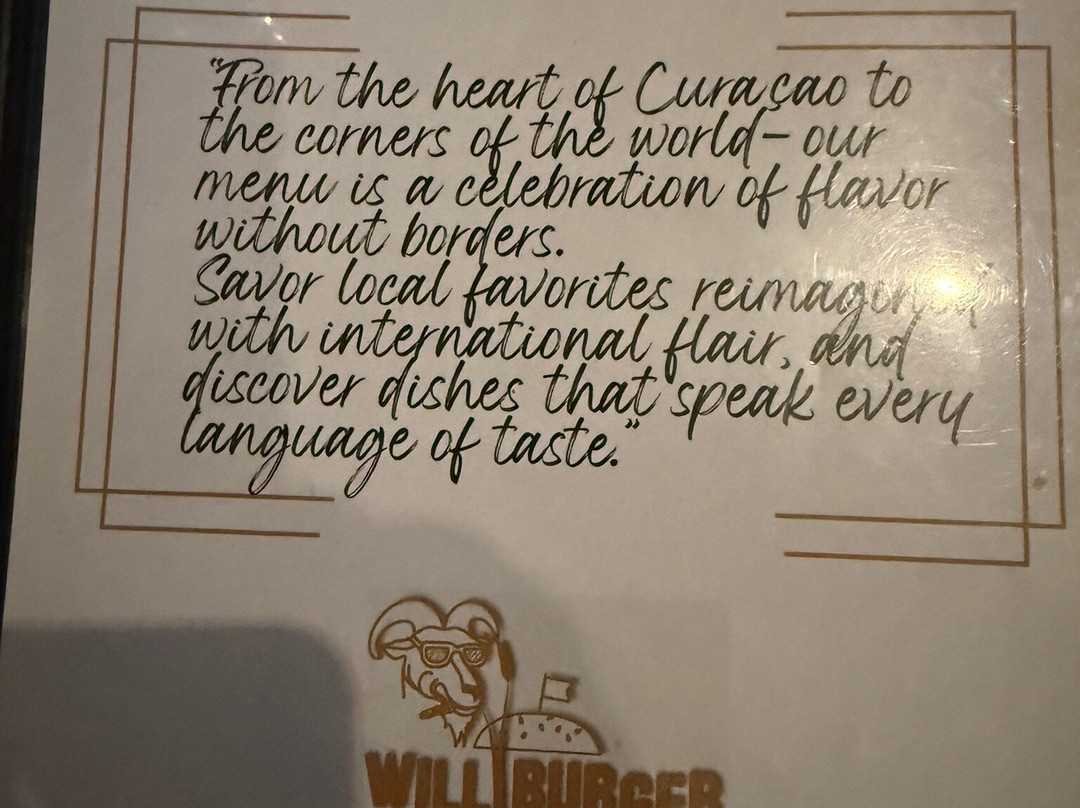 "From the heart of Curaçao to
the corners of the world– our
menu is a celebration of flavor
without borders.
Savor local favorites reimagined
with international flair, and
discover dishes that speak every
language of taste."
WILLIBURGER